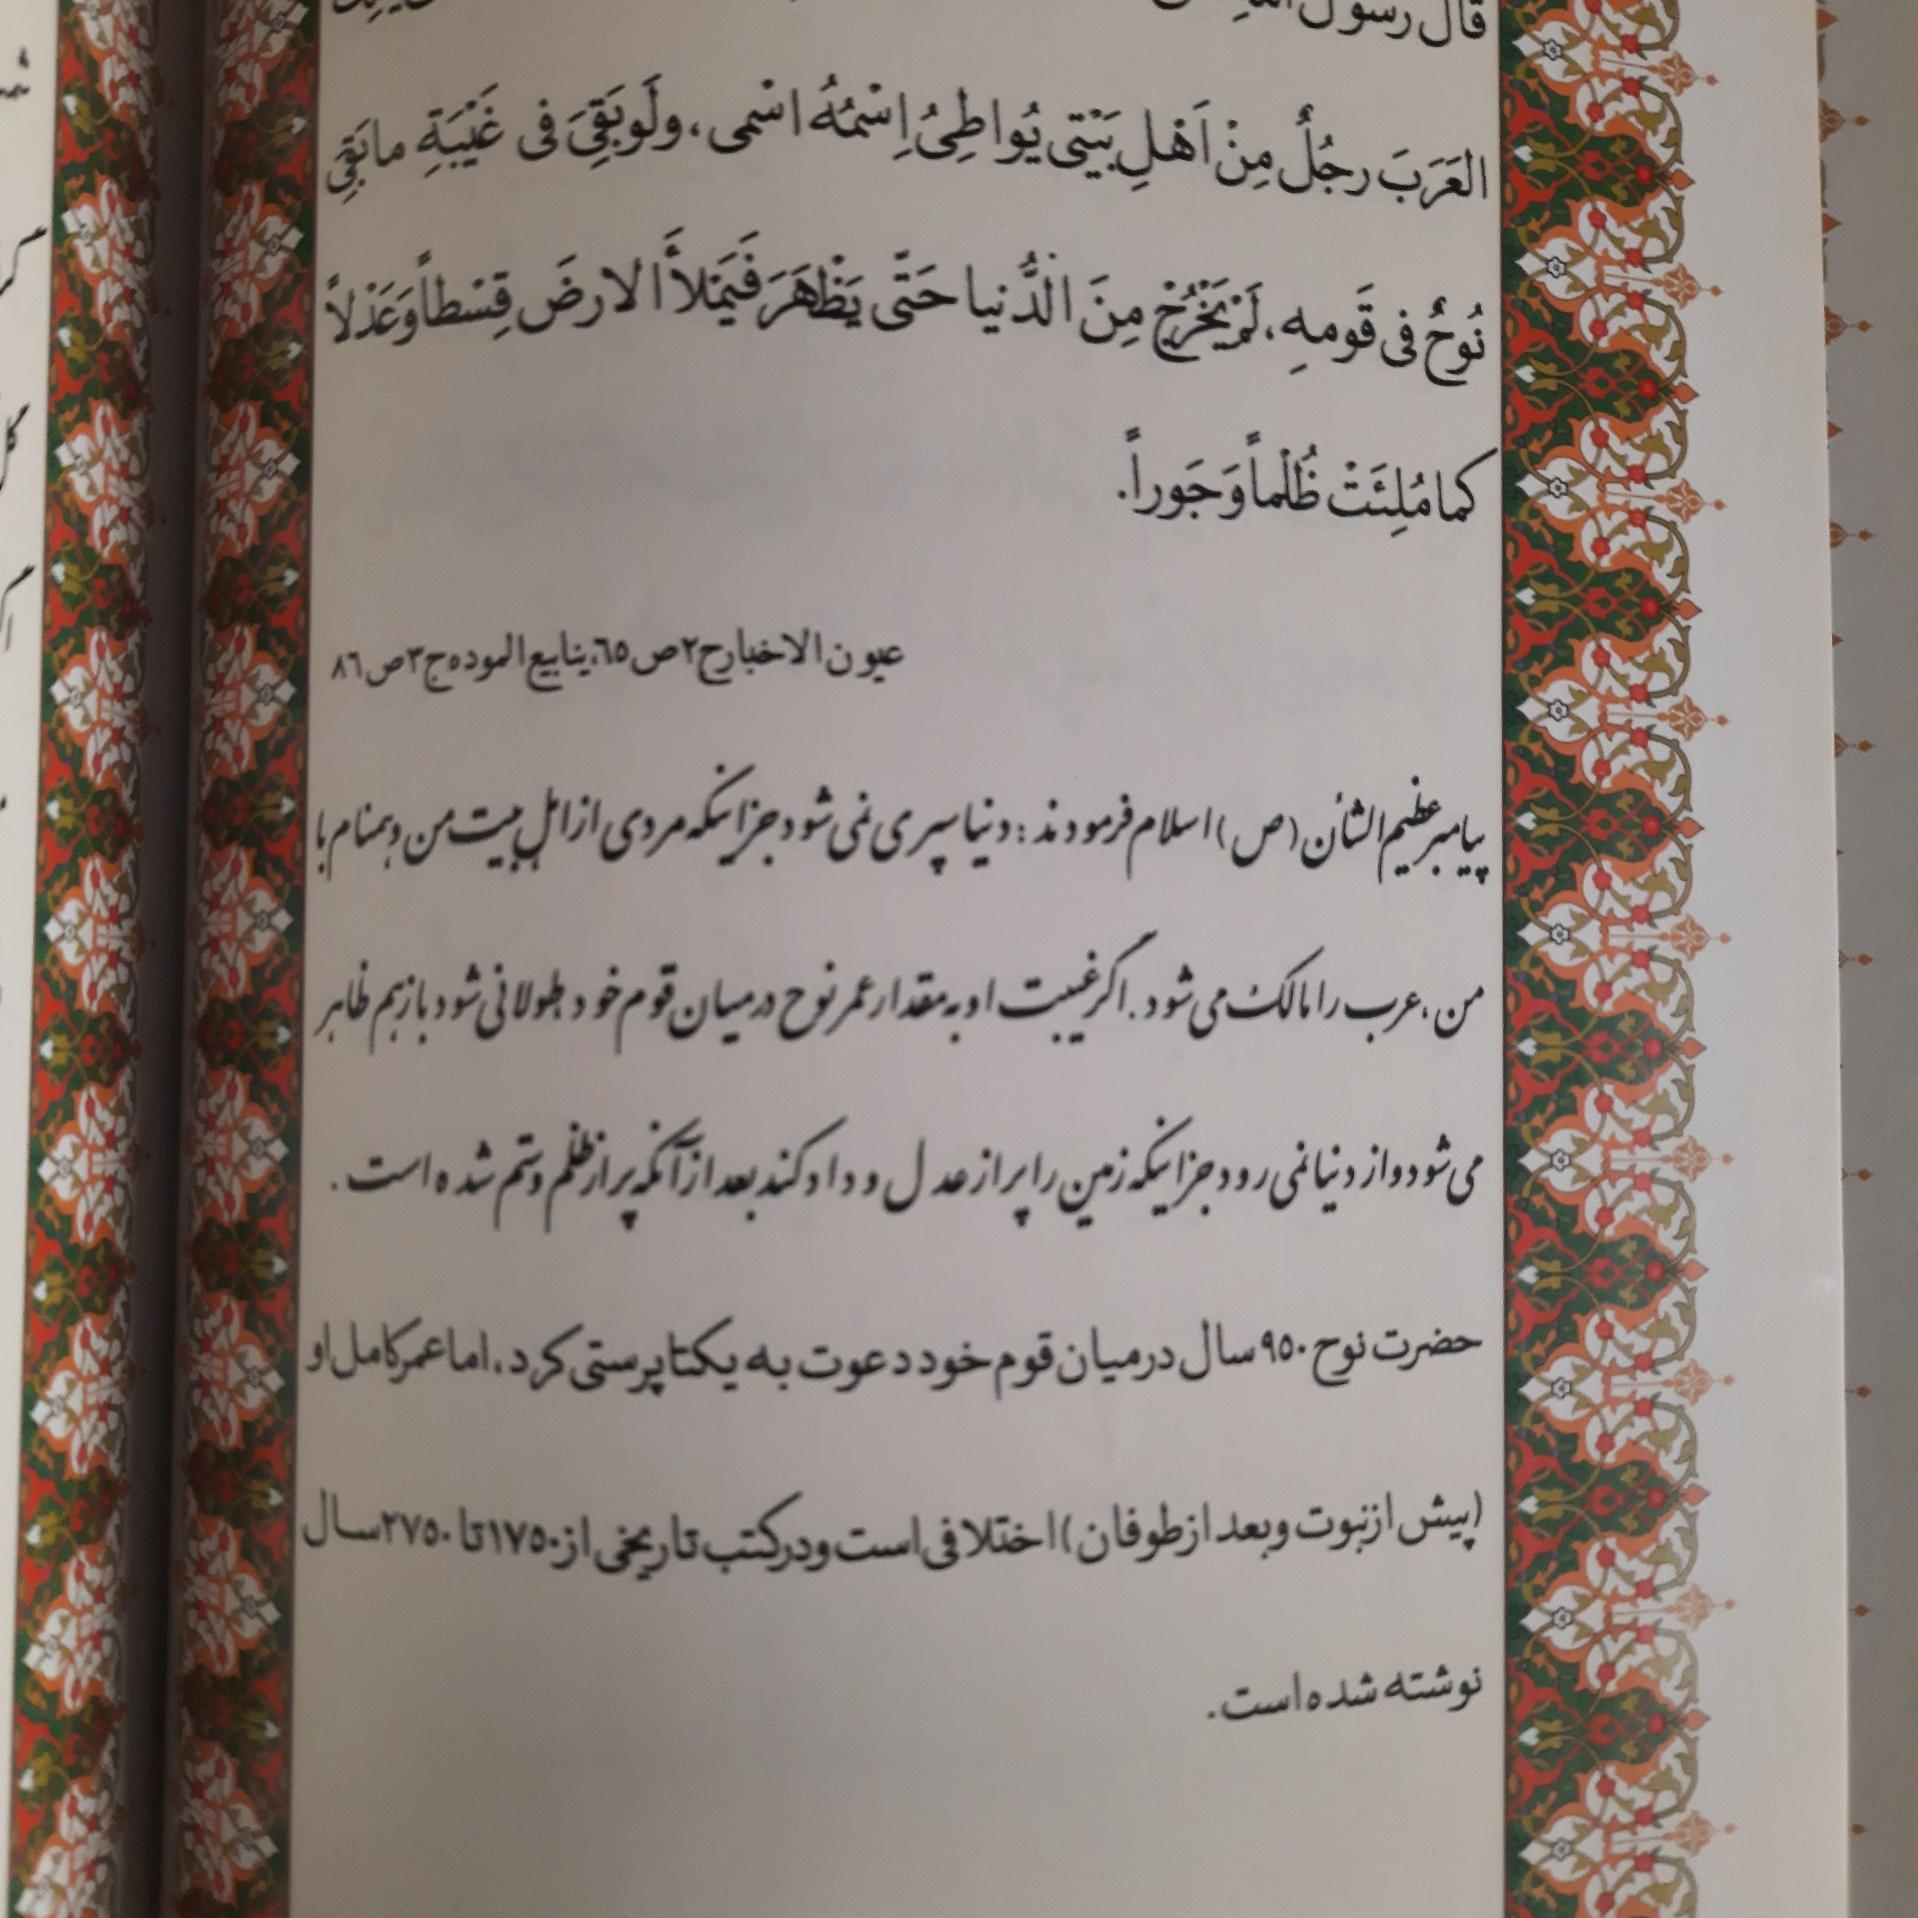 قال رسول
العَرَبَ رجُلٌ مِنْ اَهْلِ بَيْتى يُواطِىُ اِسْمُهُ اسْمى، ولَو بَقِىَ فى غَيْبَةِ ما بَقِىَ
نُوحٌ فى قَومهِ، لَمْ يَخْرُجْ مِنَ الدُّنيا حَتّى يَظْهَرَ فَيَمْلأَ الارضَ قِسْطاً وَعَدْلاً
كما مُلِئَتْ ظُلْماً وَجَوراً.
عیون الاخبار ج۲ ص ٦٥، ینابیع الموده ج۳ ص ۸٦
پیامبر عظیم الشأن (ص) اسلام فرمودند: دنیا سپری نمی شود جز اینکه مردی از اهل بیت من و همنام با
من، عرب را مالک می شود. اگر غیبت او به مقدار عمر نوح در میان قوم خود طولانی شود باز هم ظاهر
می شود و از دنیا نمی رود جز اینکه زمین را پر از عدل و داد کند بعد از آنکه پر از ظلم و ستم شده است.
حضرت نوح ۹۵۰ سال در میان قوم خود دعوت به یکتا پرستی کرد، اما عمر کامل او
(پیش از نبوت و بعد از طوفان) اختلافی است و در کتب تاریخی از ۱۷۵۰ تا ۲۷۵۰ سال
نوشته شده است.